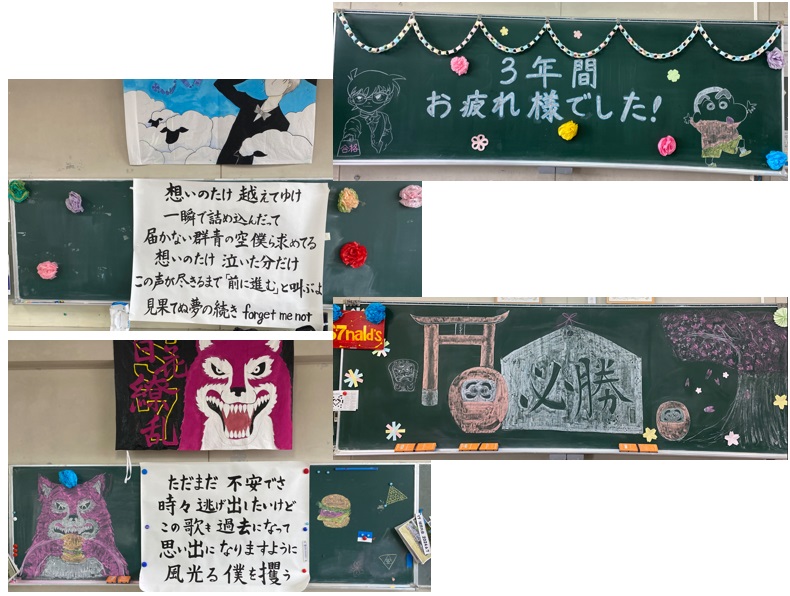 3年間
お疲れ様でした!
合格
想いのたけ 越えてゆけ
一瞬で詰め込んだって
届かない群青の空 僕ら求めてる
想いのたけ 泣いた分だけ
この声が尽きるまで「前に進む」と叫ぶよ
見果てぬ夢の続き forget me not
37nald's
必勝
繚乱
ただまだ 不安でさ
時々 逃げ出したいけど
この歌も 過去になって
思い出に なりますように
風光る 僕を攫う